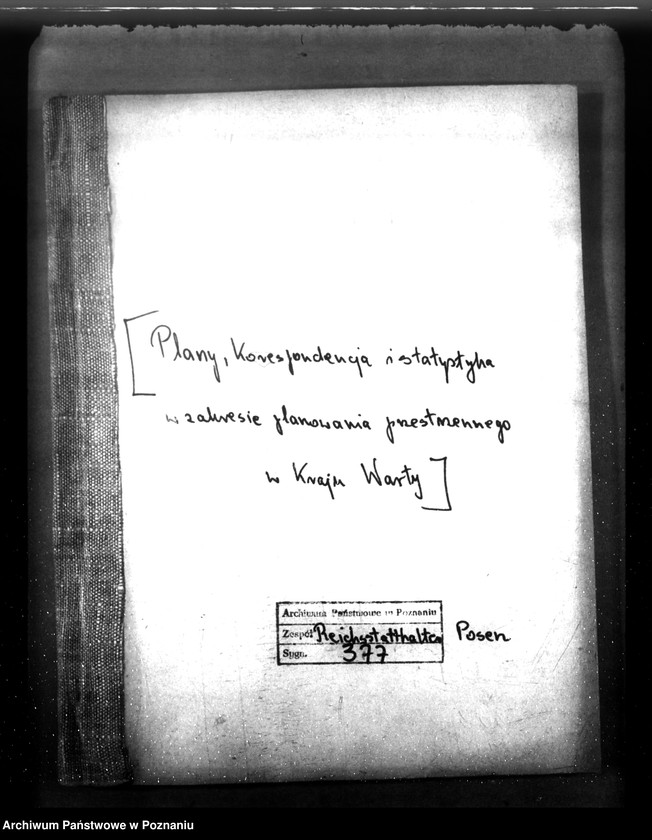 [Plany, Korespondencja i statystyka
w zakresie planowania przestrzennego
w Kraju Warty]
Archiwum Państwowe w Poznaniu
Zespół Reichsstatthalter Posen
Sygn. 377
Archiwum Państwowe w Poznaniu